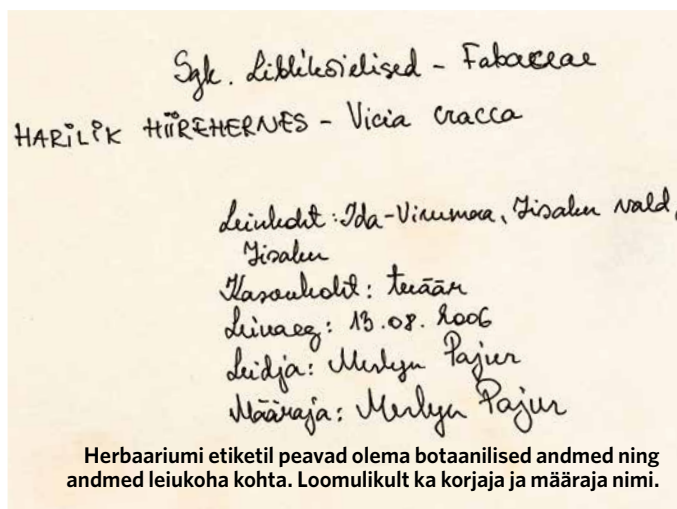 Sgk. Liblikõielised - Fabaceae
HARILIK HIIREHERNES - Vicia cracca
Leiukoht: Ida-Virumaa, Iisaku vald,
Iisaku
Kasvukoht: teeäär
Leiuaeg: 13.08.2006
Leidja: Merlyn Pajur
Määraja: Merlyn Pajur
Herbaariumi etiketil peavad olema botaanilised andmed ning
andmed leiukoha kohta. Loomulikult ka korjaja ja määraja nimi.